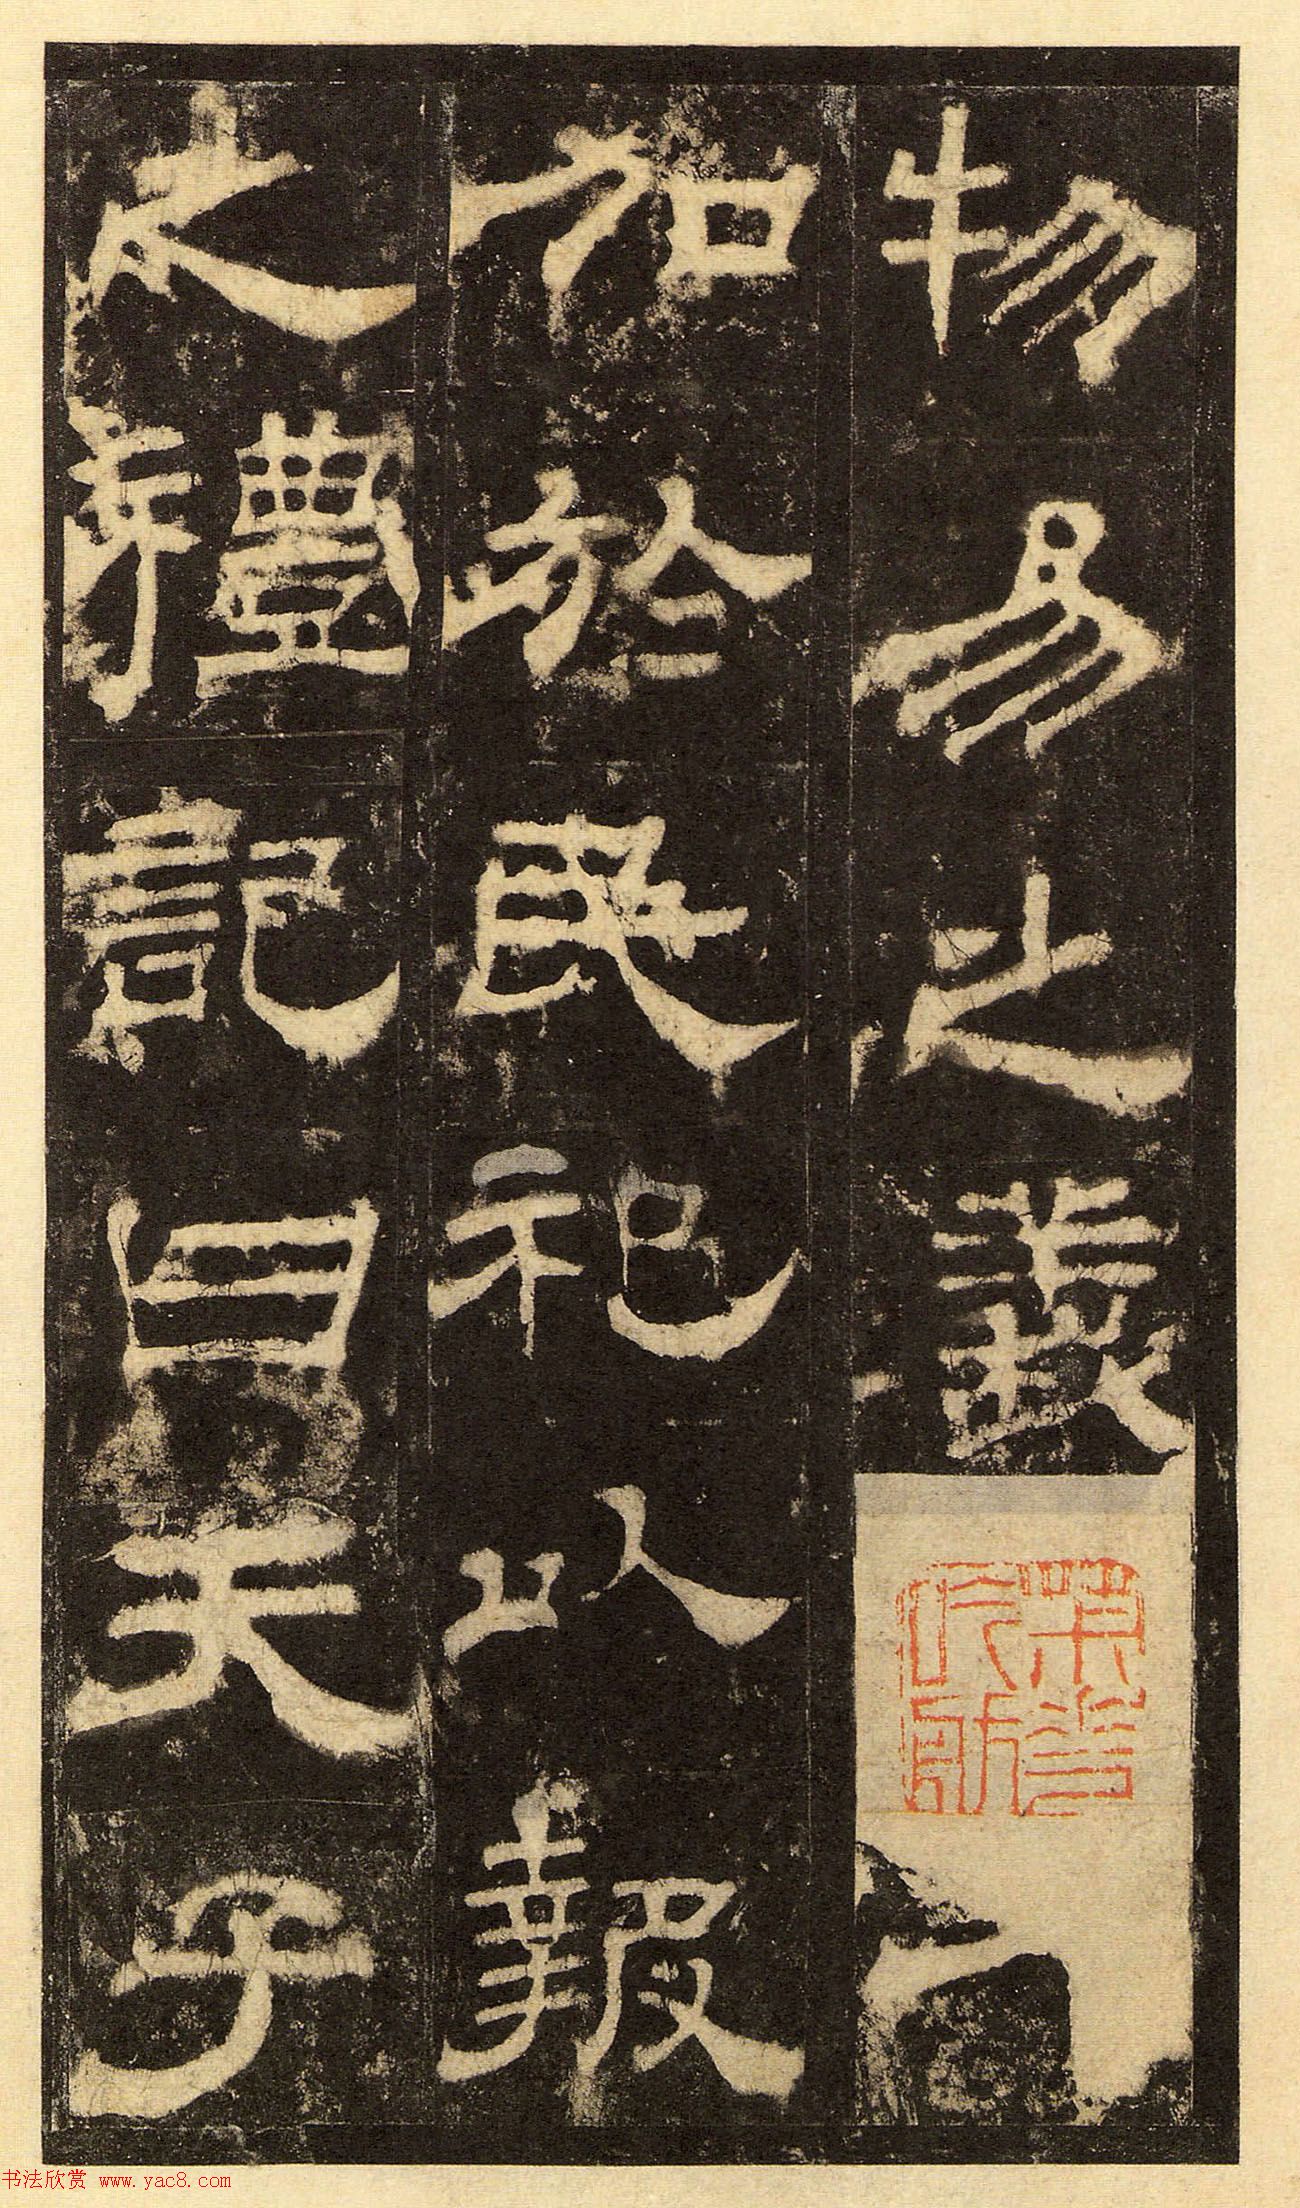 物易之義
加於民祀以報
之禮記曰天子
书法欣赏 www.yac8.com